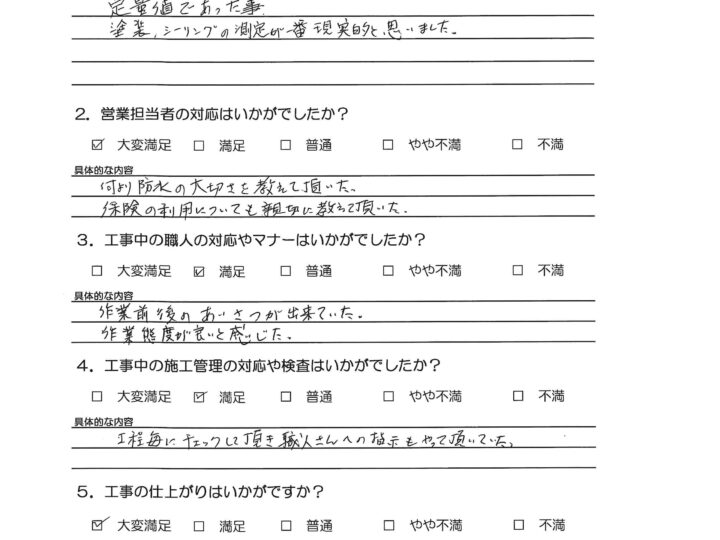 定量値であった事
塗装、シーリングの測定が一番現実的と思いました。
2. 営業担当者の対応はいかがでしたか？
☑ 大変満足 □ 満足 □ 普通 □ やや不満 □ 不満
具体的な内容
何より防水の大切さを教えて頂いた。
保険の利用についても親切に教えて頂いた.
3. 工事中の職人の対応やマナーはいかがでしたか？
□ 大変満足 ☑ 満足 □ 普通 □ やや不満 □ 不満
具体的な内容
作業前後のあいさつが出来ていた。
作業態度が良いと感じた。
4. 工事中の施工管理の対応や検査はいかがでしたか？
□ 大変満足 ☑ 満足 □ 普通 □ やや不満 □ 不満
具体的な内容
工程毎にチェックして頂き職人さんへの指示もやって頂いていた。
5. 工事の仕上がりはいかがですか？
☑ 大変満足 □ 満足 □ 普通 □ やや不満 □ 不満